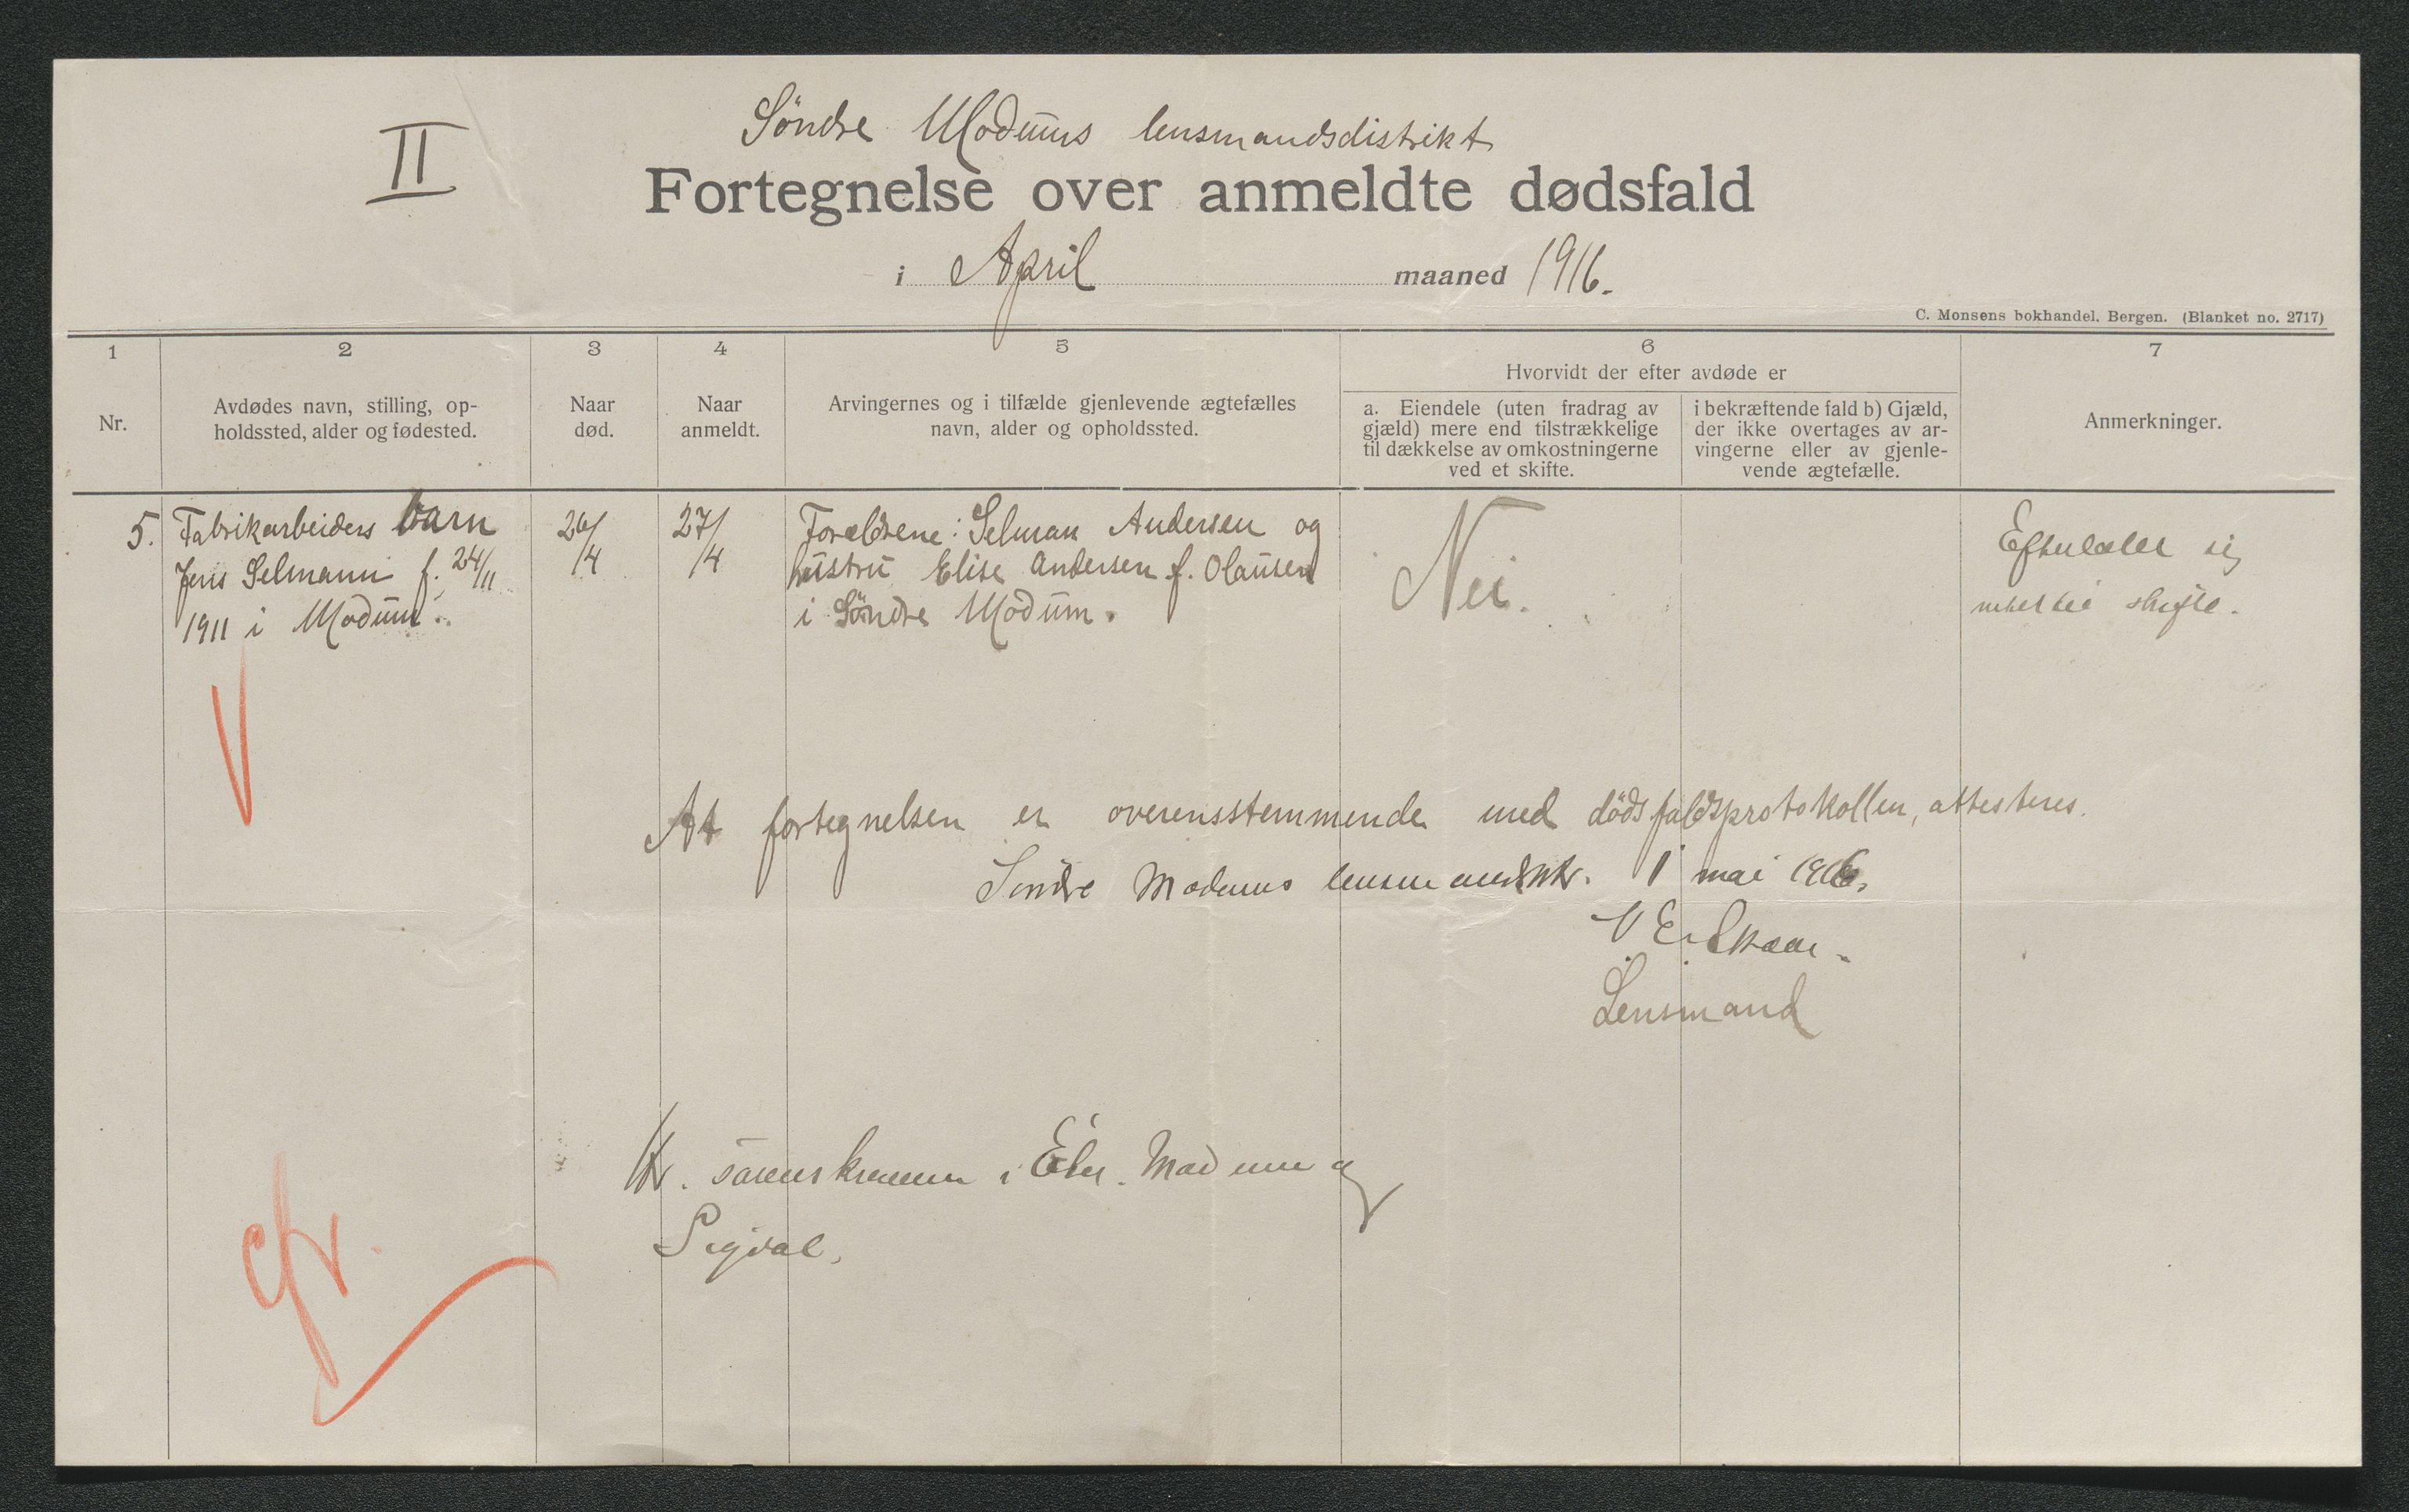 II
Söndre Modums lensmandsdistrikt
Fortegnelse over anmeldte dødsfald
i April maaned 1916.
C. Monsens bokhandel, Bergen. (Blanket no. 2717)
1
Nr.
2
Avdødes navn, stilling, op-
holdssted, alder og fødested.
3
Naar
død.
4
Naar
anmeldt.
5
Arvingernes og i tilfælde gjenlevende ægtefælles
navn, alder og opholdssted.
6
Hvorvidt der efter avdøde er
a. Eiendele (uten fradrag av
gjæld) mere end tilstrækkelige
til dækkelse av omkostningerne
ved et skifte.
i bekræftende fald b) Gjæld,
der ikke overtages av ar-
vingerne eller av gjenle-
vende ægtefælle.
7
Anmerkninger.
5.
Fabrikarbeiders barn
Jens Selmann f. 24/11
1911 i Modum.
26/4
27/4
Forældrene: Selman Andersen og
hustru Elise Andersen f. Olausen
i Söndre Modum.
Nei.
sig
skifte.
At fortegnelsen er overensstemmende med dödsfaldsprotokollen, attesteres.
Söndre Modums 1 mai 1916.
Lensmand
Hr. sorenskriveren i Eker, Modum og
Sigdal.